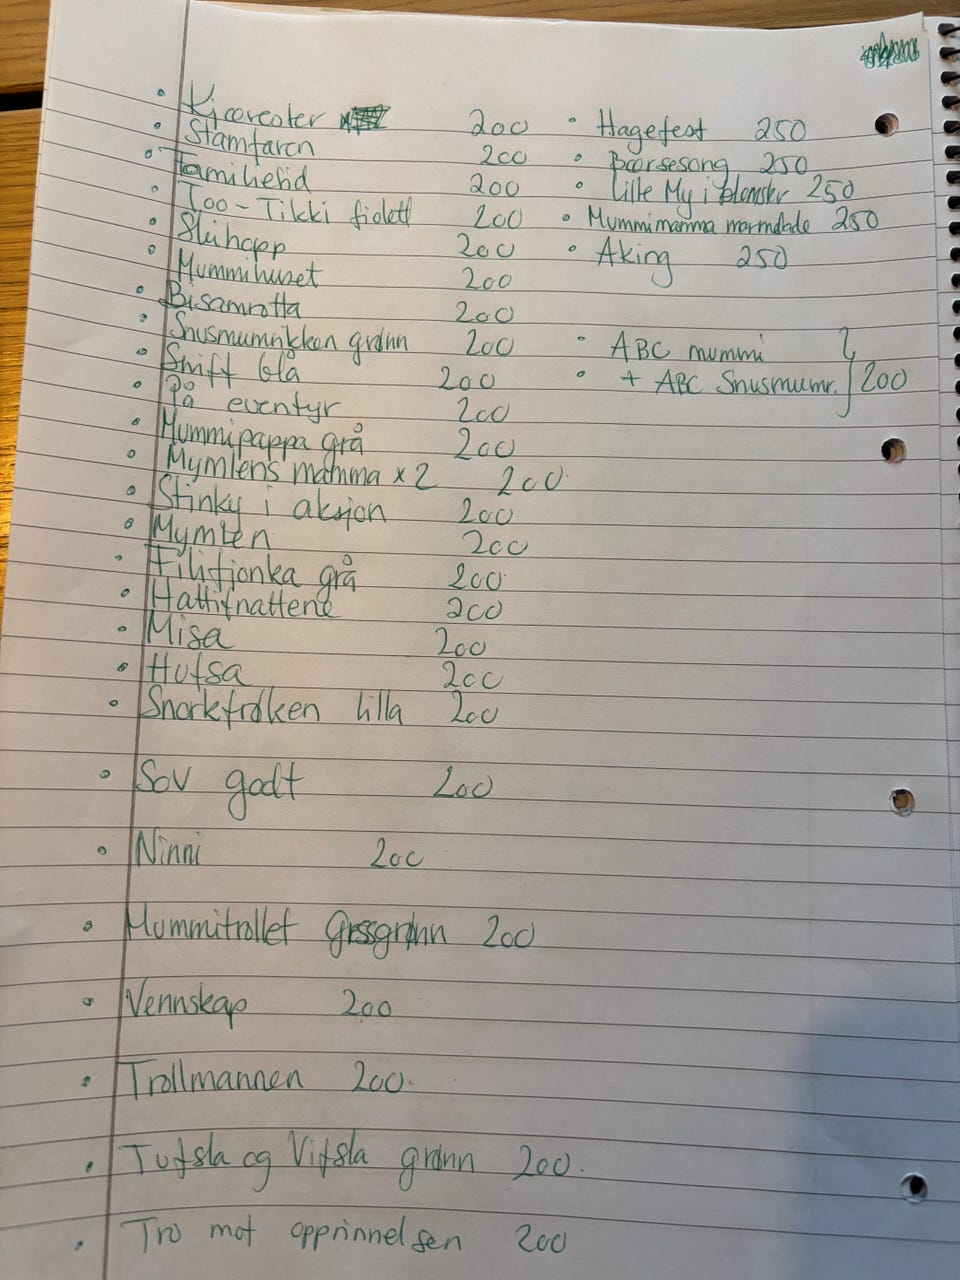 Kjærester 200
Stamfaren 200
Familietid 200
Too-Tikki fiolett 200
Skihopp 200
Mummihuset 200
Bisamrotta 200
Snusmumrikken grønn 200
Sniff blå 200
På eventyr 200
Mummipappa grå 200
Mymlens mamma x 2 200
Stinky i aksjon 200
Mymlen 200
Filifjonka grå 200
Hattifnattene 200
Misa 200
Hufsa 200
Snorkfrøken lilla 200
Sov godt 200
Ninni 200
Mummitrollet Gressgrønn 200
Vennskap 200
Trollmannen 200.
Tufsla og Vifsla grønn 200.
Tro mot opprinnelsen 200
Hagefest 250
Bærsesong 250
Lille My i blomster 250
Mummimamma marmelade 250
Aking 250
ABC mummi
+ ABC Snusmumr. 200